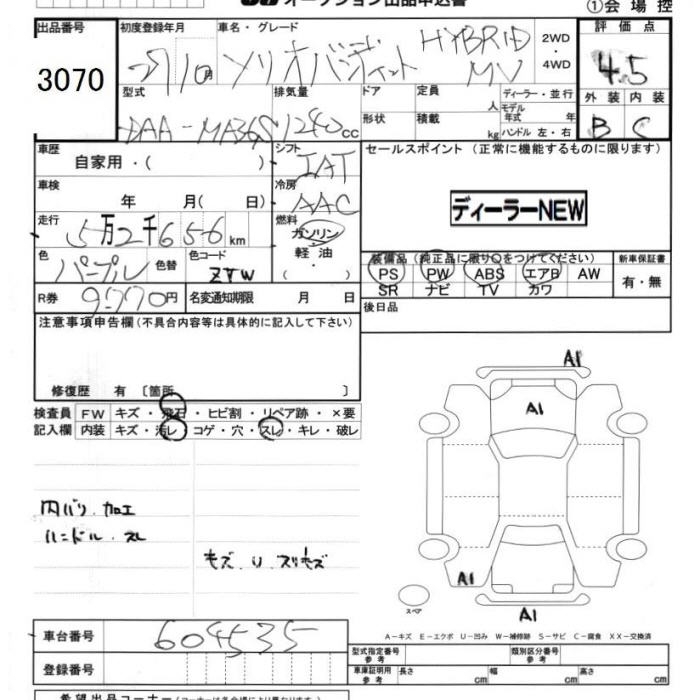 オークション出品申込書
①会場控
出品番号
3070
初度登録年月 車名・グレード
29 10月 ソリオバンディット HYBRID MV
2WD・4WD
評価点
4.5
外装 内装
B C
型式 排気量
DAA-MA36S 1240cc
ドア 定員 人
形状 積載 kg
ディーラー・並行
モデル年式 年
ハンドル 左・右
車歴 自家用・( )
シフト IAT
車検 年 月( 日)
冷房 AAC
走行 5万2千656km
燃料 ガソリン・軽油・( )
色 パープル 色替 色コード ZYW
R券 9770円 名変通知期限 月 日
セールスポイント (正常に機能するものに限ります)
ディーラーNEW
装備品(純正品に限り○をつけてください) 新車保証書
PS PW ABS エアB AW
SR ナビ TV カワ
有・無
後日品
注意事項申告欄(不具合内容等は具体的に記入して下さい)
修復歴 有 〔箇所 〕
検査員記入欄
FW キズ・飛石・ヒビ割・リペア跡・×要
内装 キズ・汚レ・コゲ・穴・スレ・キレ・破レ
内バリ・加工
ハンドル・スレ
キズ・U・スリキズ
A1
A1
A1
A1
スペア
A-キズ E-エクボ U-凹み W-補修跡 S-サビ C-腐食 XX-交換済
車台番号 604535
登録番号
型式指定番号 参考 類別区分番号 参考
車庫証明用 参考 長さ cm 幅 cm 高さ cm
希望出品コーナー